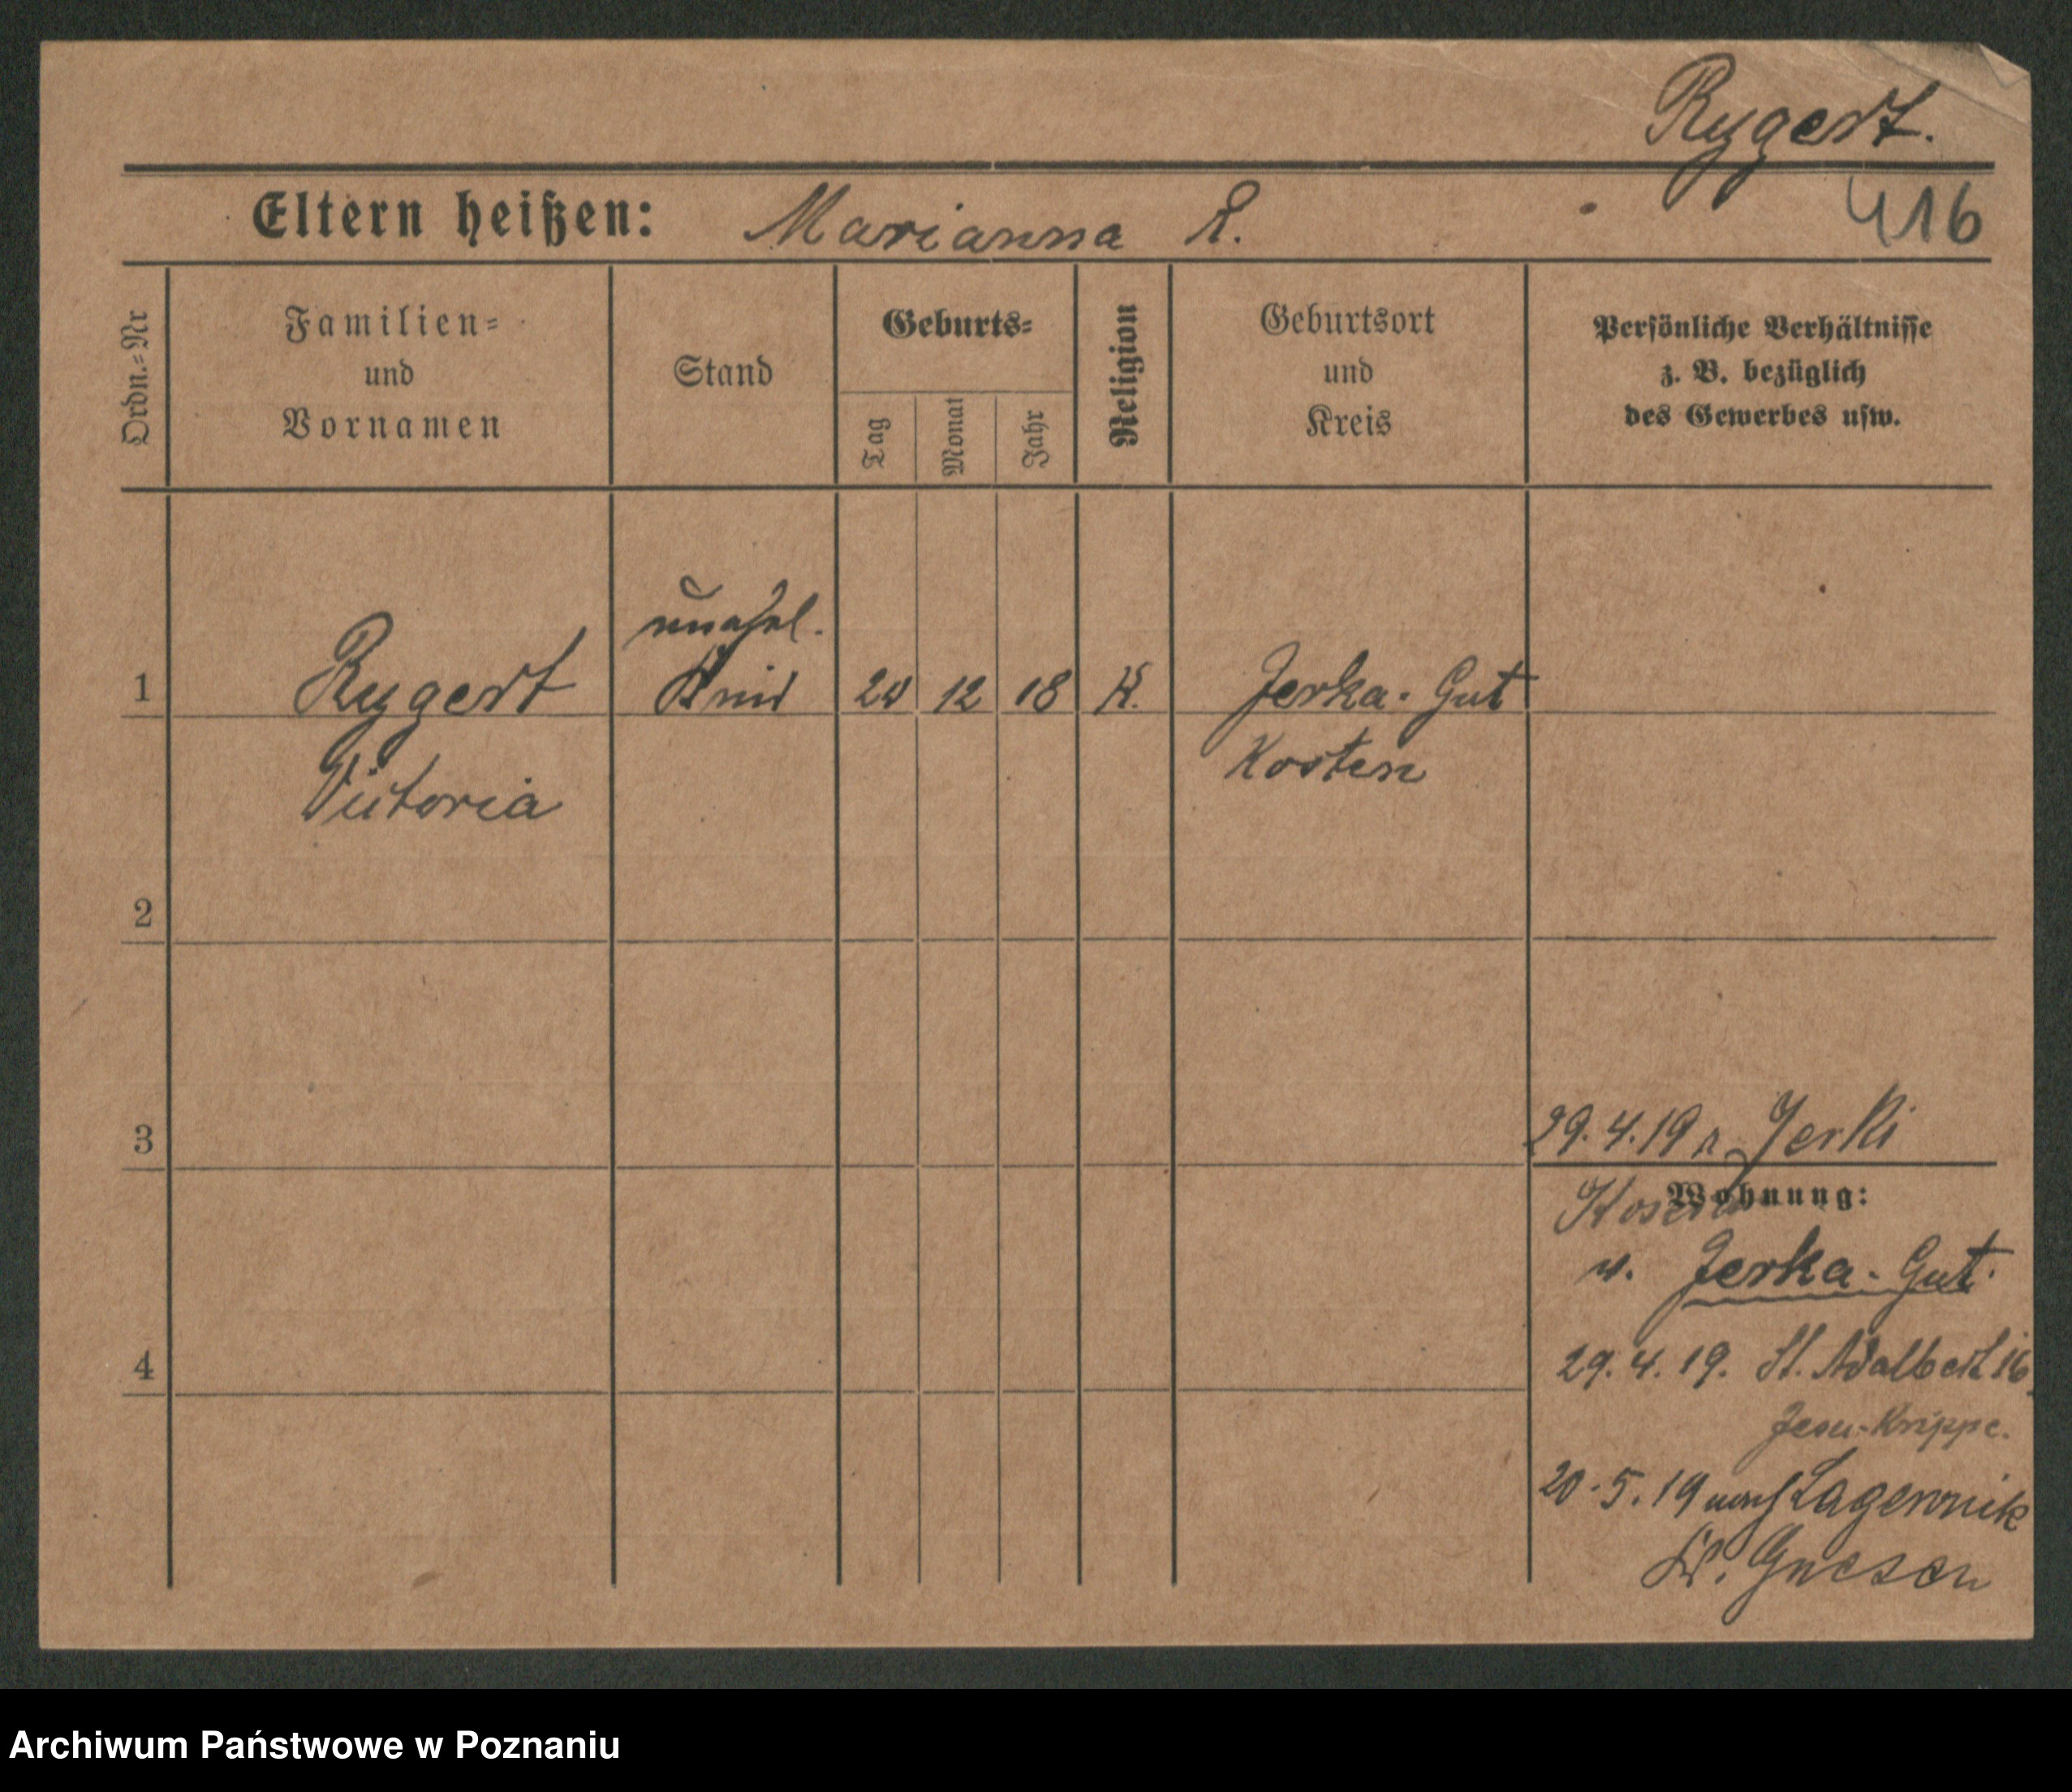 Rygert.
Eltern heißen: Marianna R.
416
Ordn.=Nr
Familien=
und
Vornamen
Stand
Geburts=
Tag
Monat
Jahr
Religion
Geburtsort
und
Kreis
Persönliche Verhältnisse
z. B. bezüglich
des Gewerbes usw.
unehel.
1 Rygert Kind 12 18 K. Jerka-Gut
Victoria
Kosten
2
3
29.4.19 Jerki
Wohnung:
v. Jerka-Gut.
4
29.4.19. St. Adalbert 16.
Jesu-Krippe.
20.5.19 nach Lagiewnik
Kr. Gnesen
Archiwum Państwowe w Poznaniu